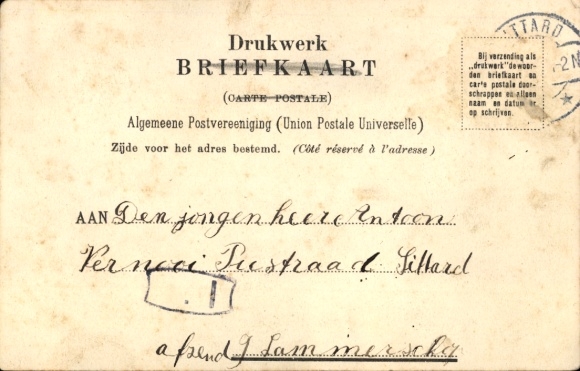 Drukwerk
BRIEFKAART
(CARTE POSTALE)
Algemeene Postvereeniging (Union Postale Universelle)
Zijde voor het adres bestemd. (Côté réservé à l'adresse)
TTARD
2N
Bij verzending als
„drukwerk” de woor-
den briefkaart en
carte postale door-
schrappen en alleen
naam en datum er
op schrijven.
AAN Den jongen heere Antoon
Vernooi Putstraad Sittard
afzend J Lammerschg